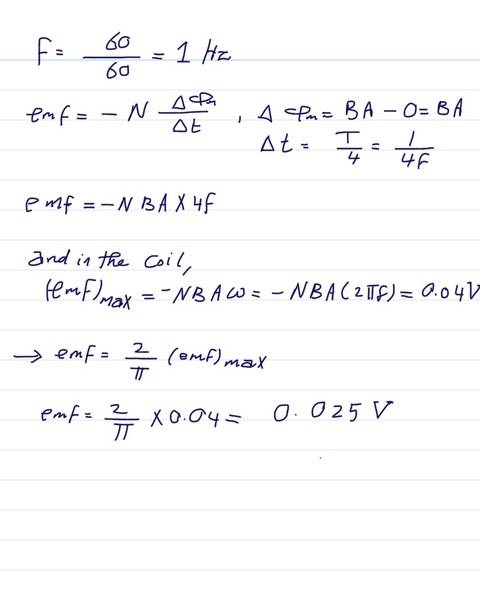 F = 60/60 = 1 Hz
emf = - N Δφm/Δt , Δφm = BA - 0 = BA
Δt = T/4 = 1/4F
emf = - N BA X 4f
and in the coil,
(emf)max = -NBAω = - NBA(2πf) = 0.04V
→ emf = 2/π (emf)max
emf = 2/π X 0.04 = 0.025 V